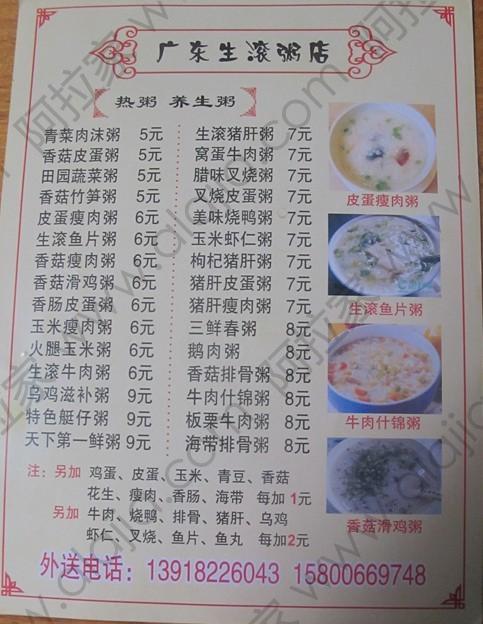 广东生滚粥店
热粥 养生粥
青菜肉沫粥 5元
香菇皮蛋粥 5元
田园蔬菜粥 5元
香菇竹笋粥 5元
皮蛋瘦肉粥 6元
生滚鱼片粥 6元
香菇瘦肉粥 6元
香菇滑鸡粥 6元
香肠皮蛋粥 6元
玉米瘦肉粥 6元
火腿玉米粥 6元
生滚牛肉粥 6元
乌鸡滋补粥 9元
特色艇仔粥 9元
天下第一鲜粥 9元
生滚猪肝粥 7元
窝蛋牛肉粥 7元
腊味叉烧粥 7元
叉烧皮蛋粥 7元
美味烧鸭粥 7元
玉米虾仁粥 7元
枸杞猪肝粥 7元
猪肝皮蛋粥 7元
猪肝瘦肉粥 7元
三鲜春粥 8元
鹅肉粥 8元
香菇排骨粥 8元
牛肉什锦粥 8元
板栗牛肉粥 8元
海带排骨粥 8元
皮蛋瘦肉粥
生滚鱼片粥
牛肉什锦粥
香菇滑鸡粥
注：另加 鸡蛋、皮蛋、玉米、青豆、香菇
花生、瘦肉、香肠、海带 每加1元
另加 牛肉、烧鸭、排骨、猪肝、乌鸡
虾仁、叉烧、鱼片、鱼丸 每加2元
外送电话：13918226043 15800669748
阿拉家 www.alajia.com